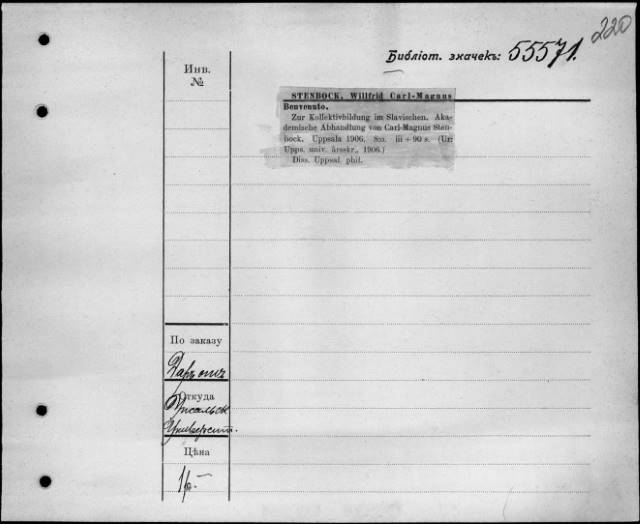 220
Библіот. значекъ: 55571.
Инв.
№
STENBOCK, Willfrid Carl-Magnus
Benvenuto.
Zur Kollektivbildung im Slavischen. Aka-
demische Abhandlung von Carl-Magnus Sten-
bock. Uppsala 1906. 8:o. iii + 90 s. (Ur:
Upps. univ. årsskr., 1906.)
Diss. Uppsal. phil.
По заказу
Даръ отъ
Откуда
Упсальск
Университ.
Цѣна
1р.–